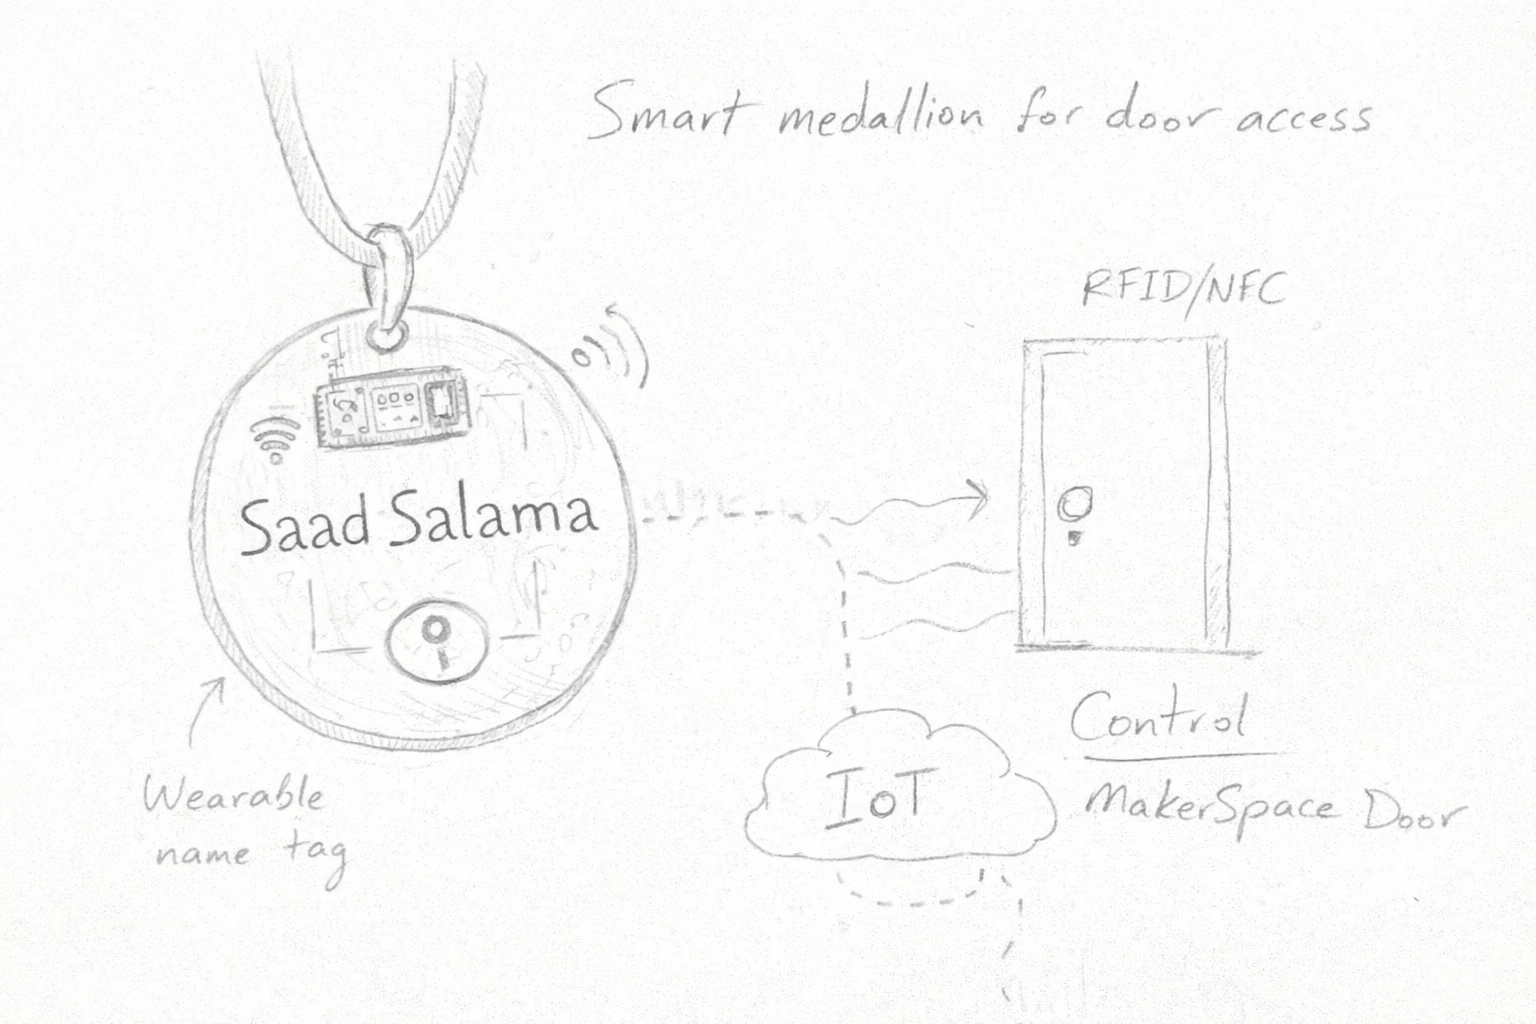 Smart medallion for door access
RFID/NFC
Saad Salama
Control
IoT
MakerSpace Door
Wearable
name tag